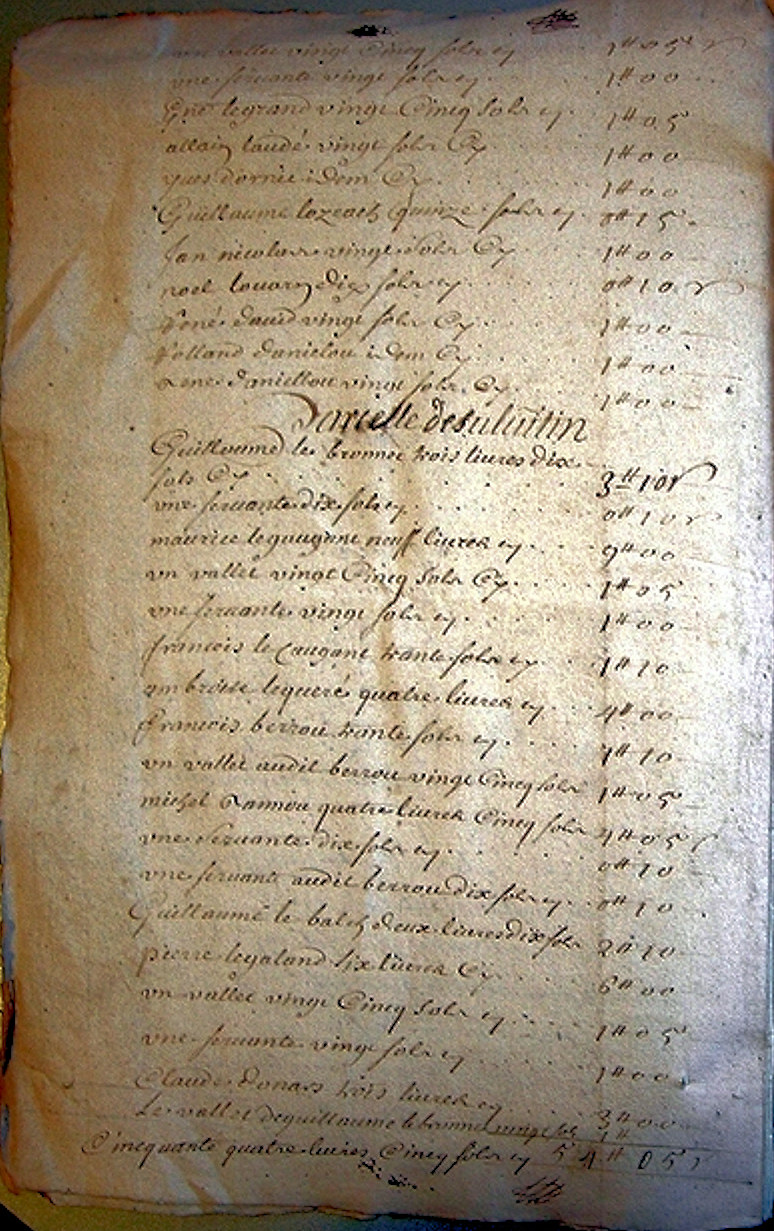 vn vallet vingt Cincq solz cy 1tt 05
vne servante vingt solz cy 1tt 00
legrand vingt Cincq solz cy 1tt 05
allain laudé vingt solz Cy 1tt 00
yues dornic idem Cy 1tt 00
Guillaume lozeach quinze solz cy 0tt 15
Jan nicolas vingt solz Cy 1tt 00
noel louarn dix solz cy 0tt 10
René dauid vingt solz Cy 1tt 00
Rolland danielou idem Cy 1tt 00
rene daniellou vingt solz Cy 1tt 00
Parcelle de
Guillaume le bronnec trois liures dix
solz Cy 3tt 10
vne seruante dix solz cy 0tt 10
maurice legougant neuff liures cy 9tt 00
vn vallet vingt Cincq solz Cy 1tt 05
vne seruante vingt solz cy 1tt 00
francois le trante solz cy 1tt 10
ambroise lequeré quatre liures cy 4tt 00
francois berrou trante solz cy 1tt 10
vn vallet audit berrou vingt Cincq solz 1tt 05
michel Lanniou quatre liures Cincq solz 4tt 05
vne seruante dix solz cy 0tt 10
vne seruante audit berrou dix solz cy 0tt 10
Guillaume le balch deux liures dix solz 2tt 10
pierre legaland six liures Cy 6tt 00
vn vallet vingt Cincq solz cy 1tt 05
vne seruante vingt solz cy 1tt 00
Claude donars trois liures cy 3tt 00
Le vallet deguillaume le bronnec vingt sol 1tt
Cincquante quatre liures Cincq solz cy 54tt 05